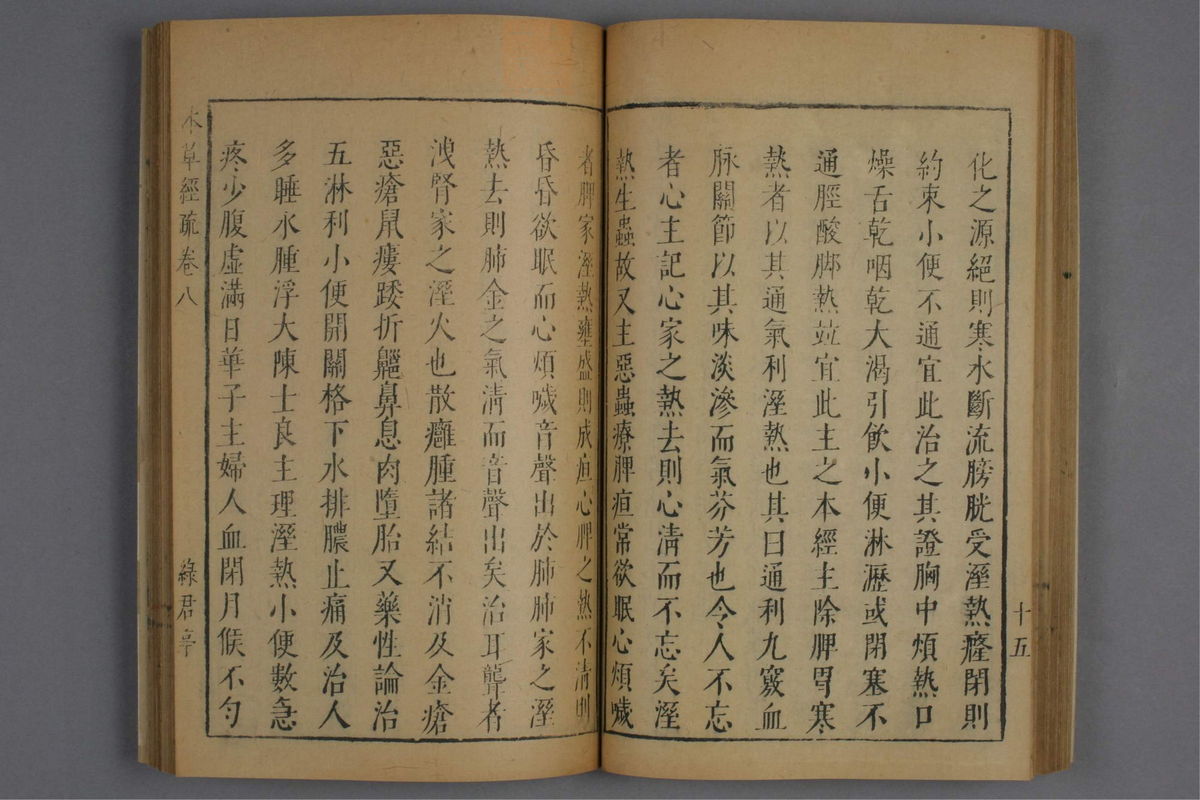 化之源絕則寒水斷流膀胱受溼熱癃閉則
約束小便不通宜此治之其證胸中煩熱口
燥舌乾咽乾大渴引飲小便淋瀝或閉塞不
通脛酸脚熱竝宜此主之本經主除脾胃寒
熱者以其通氣利溼熱也其曰通利九竅血
脉關節以其味淡滲而氣芬芳也令人不忘
者心主記心家之熱去則心淸而不忘矣溼
熱生蟲故又主惡蟲療脾疸常欲眠心煩噦
十五
者脾家溼熱壅盛則成疸心脾之熱不淸則
昏昏欲眠而心煩噦音聲出於肺肺家之溼
熱去則肺金之氣淸而音聲出矣治耳聾者
洩腎家之溼火也散癰腫諸結不消及金瘡
惡瘡鼠瘻踒折齆鼻息肉墮胎又藥性論治
五淋利小便開關格下水排膿止痛及治人
多睡水腫浮大陳士良主理溼熱小便數急
疼少腹虛滿日華子主婦人血閉月候不勻
本草經疏 卷八 綠君亭